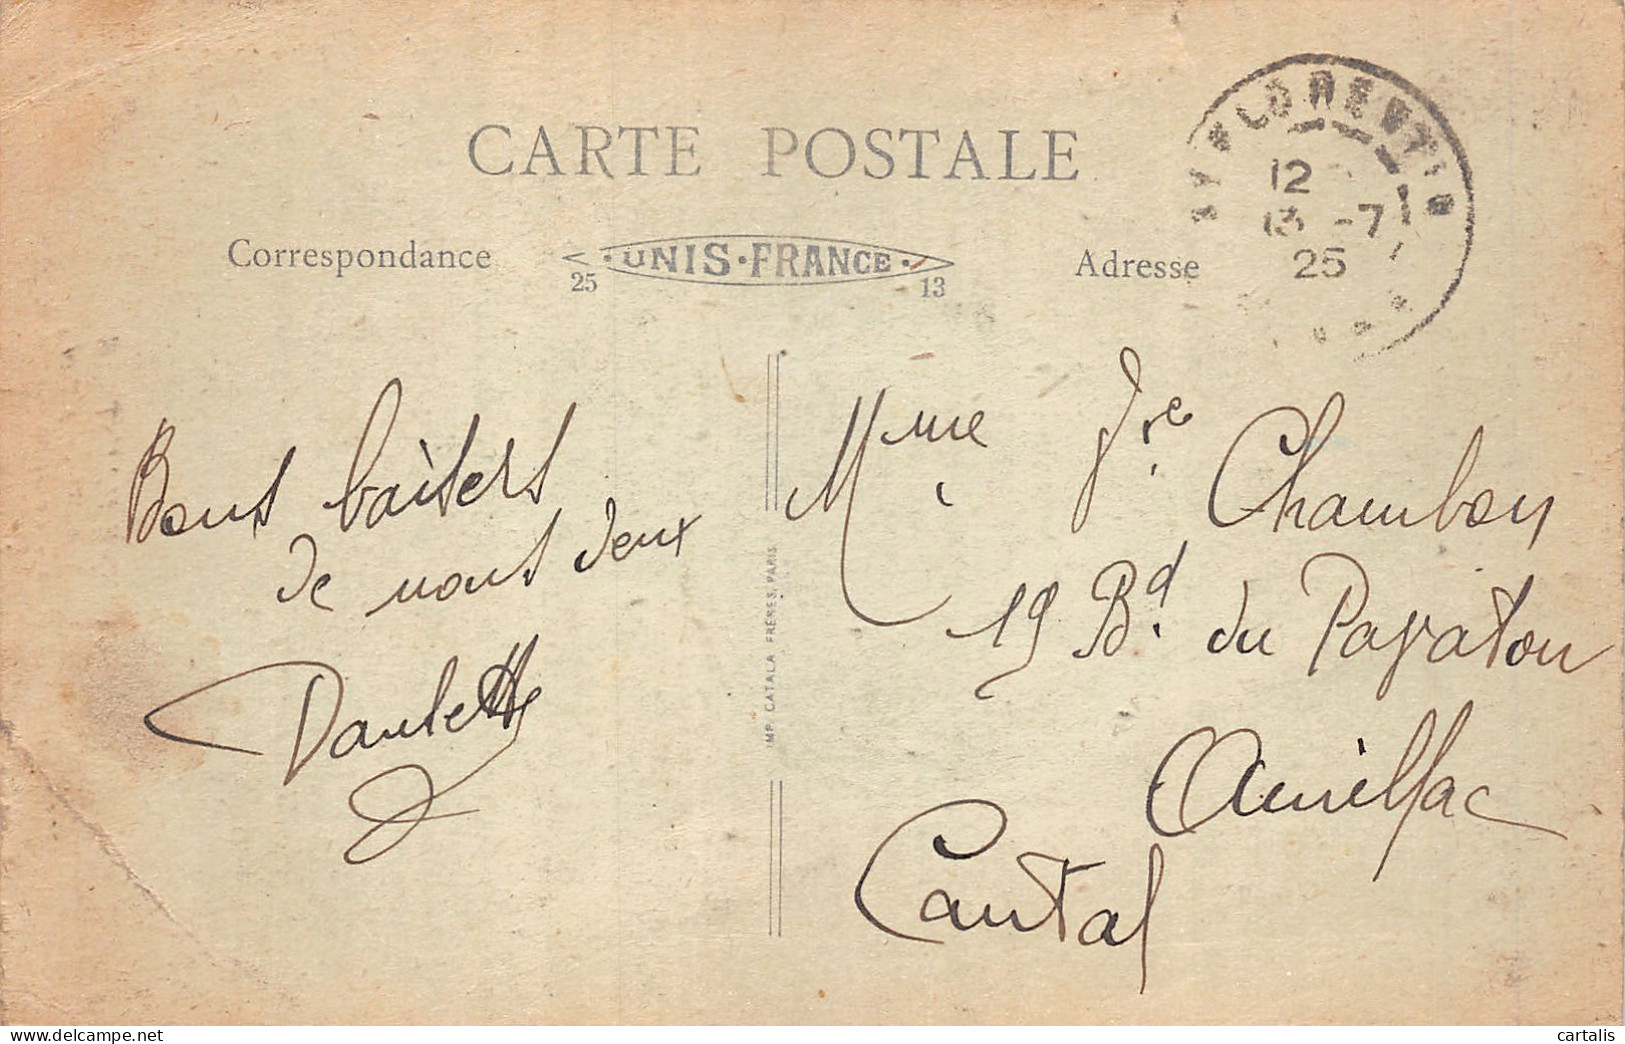 CARTE POSTALE
Correspondance
UNIS-FRANCE
25
13
Adresse
ST FLORENTIN
12
13 -7
25
Bons baisers
de nous deux
Paulette
IMP. CATALA FRÈRES, PARIS
Mme Vve Chambon
19 Bd. du Pavatou
Aurillac
Cantal
cartalis